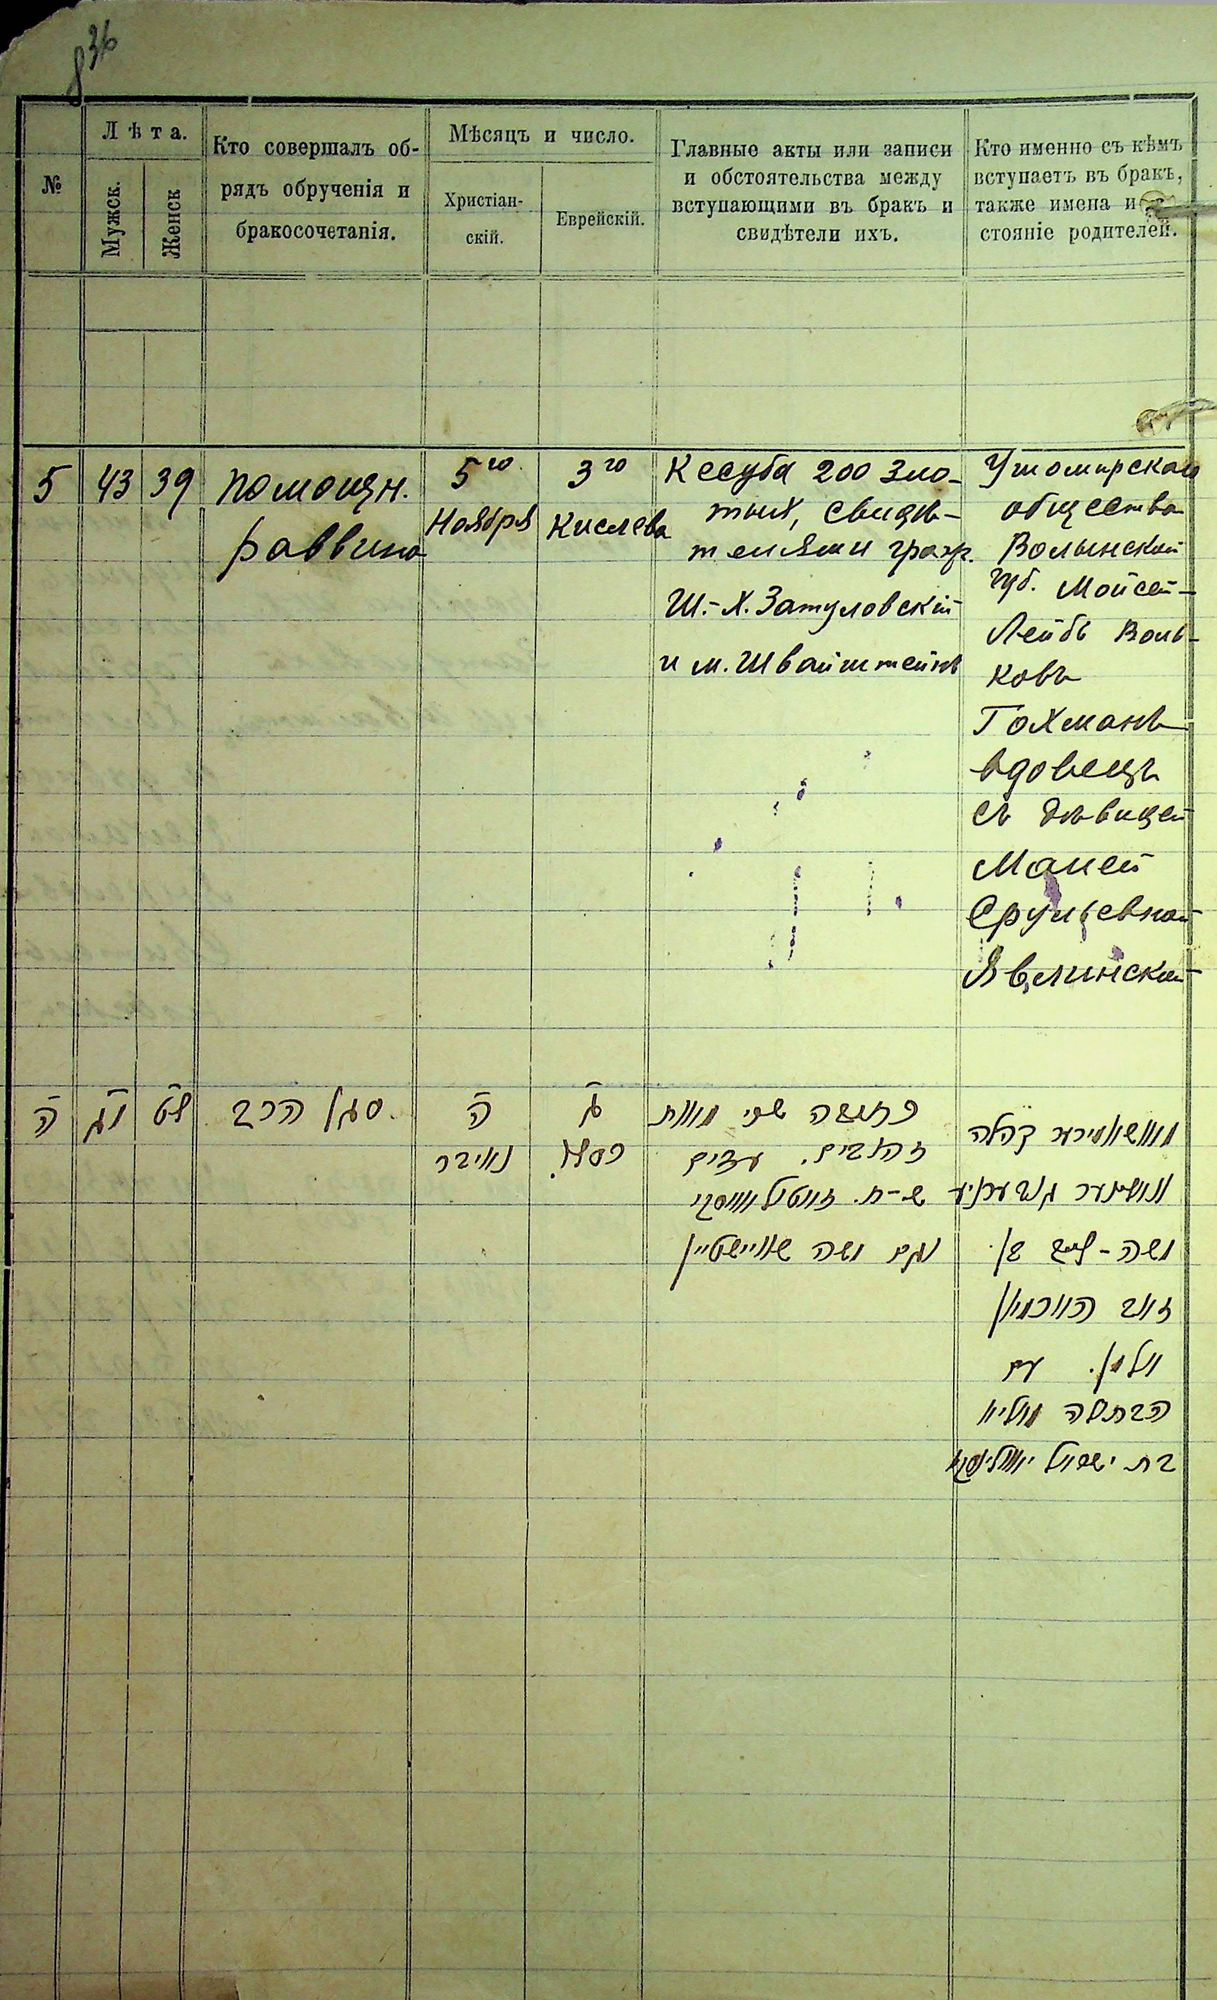 836
№
Лѣта.
Мужск.
Женск
Кто совершалъ об-
рядъ обрученія и
бракосочетанія.
Мѣсяцъ и число.
Христіан-
скій.
Еврейскій.
Главные акты или записи
и обстоятельства между
вступающими въ бракъ и
свидѣтели ихъ.
Кто именно съ кѣмъ
вступаетъ въ бракъ,
также имена и
стояніе родителей.
5
43
39
помощн.
раввина
5го
Ноября
3го
Кислева
Кесуба 200 зло-
тых, свидѣ-
телями граж.
Ш.-Х. Затуловскій
и М. Швайштейнъ
Ушомирскаго
общества
Волынской
губ. Мойсей-
Лейбъ Воль-
ковъ
Гохманъ
вдовецъ
съ дѣвицей
Маней
Срулевной
Явлинской
ה
מג
לט
סגן הרב
ה
נאיבר
ג
כסלו
כתובה שני מאות
זהובים. עדים
ש-ח. זאטולאווסקי
וגם משה שווײשטײן
קהלה
משה-לייב בן
זאב האכמאן
אלמן. עם
הבתולה מאניא
בת ישראל יאוולינסקי